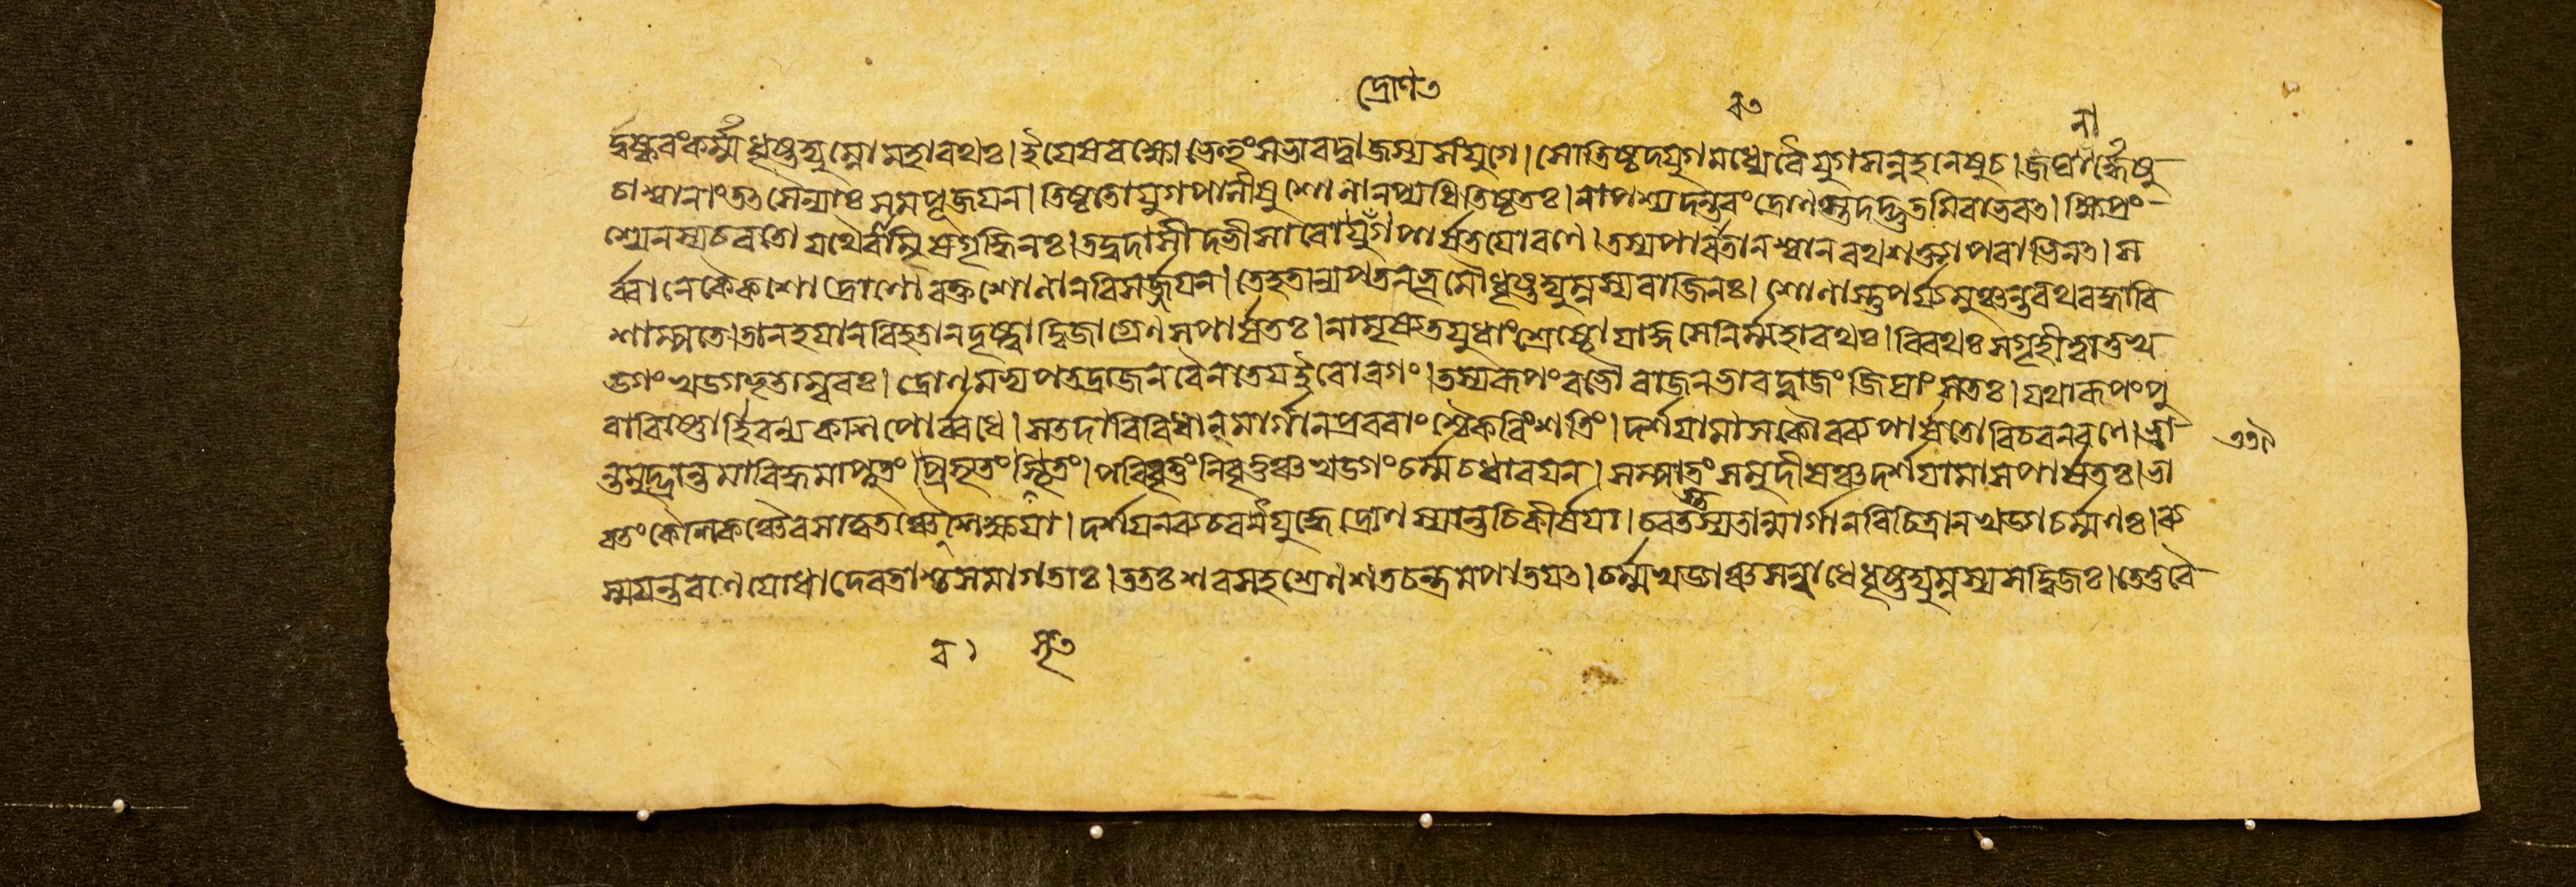 দ্রোণ৩
র৩
না
র্দুষ্করংকর্ম্মধৃষ্টদ্যুম্নোমহারথঃ। ইয়েষবক্ষোভেত্তুংসভারদ্বাজস্যসংযুগে। সোতিষ্ঠদযুগমধ্যেবৈযুগসন্নহনেষুচ। জঘনার্দ্ধেষু
চাশ্বানাংতত্সৈন্যাঃসমপূজয়ন। তিষ্ঠতোযুগপালীষুশোণানপ্যধিতিষ্ঠতঃ। নাপশ্যদন্তরংদ্রোণস্তদদ্ভুতমিবাভবত। ক্ষিপ্রং
শ্যেনস্যচরতোযথৈবামিষগৃদ্ধিনঃ। তদ্বদাসীদভীসারোর্যুগপার্ষতযোরণে। তস্যপারবতানশ্বানরথশক্ত্যাপরাভিনত। স
র্ব্বানেকৈকশোদ্রোণোরক্তশোণানবিসর্জ্জয়ন। তেহতান্যপতনভূমৌধৃষ্টদ্যুম্নস্যবাজিনঃ। শোণাস্তুপর্য্যমুঞ্চন্তরথবন্ধাবি
শাম্পতে।তানহয়ানবিহতানদৃষ্ট্বাদ্বিজাগ্রেণসপার্ষতঃ। নামৃষ্যতযুধাংশ্রেষ্ঠোযাজ্ঞসেনির্ম্মহারথঃ। বিরথঃসগৃহীত্বাতুখ
ড্গংখড্গভৃতাম্বরঃ। দ্রোণমভ্যপতদ্রাজনবৈনতেয়ইবোরগং। তস্যরূপংবভৌরাজনভারদ্বাজংজিঘাংসতঃ। যথারূপংপু
রাবিষ্ণোর্হিরন্যকশিপোর্ব্বধে। সতদাবিবিধানমার্গানপ্রবরাংশ্চৈকবিংশতিং। দর্শয়ামাসকৌরব্যপার্ষতোবিচরনরণে।ভ্রা
ন্তমুদ্ভ্রান্তমাবিদ্ধমাপ্লুতংপ্রসৃতংসৃতং। পরিবৃত্তংনিবৃত্তঞ্চখড্গংচর্ম্মচধারয়ন। সম্পাতংসমুদীর্ণঞ্চদর্শয়ামাসপার্ষতঃ। ভা
রতংকৌশিকঞ্চৈবসাত্বতঞ্চৈশিক্ষয়া। দর্শয়নব্যচরর্নযুদ্ধেদ্রোণস্যান্তচিকীর্ষয়া। চরতস্তস্যতান্মার্গানবিচিত্রানখড্গচর্ম্মণঃ। ব্য
স্ময়ন্তরণেযোধাদেবতাশ্চসমাগতাঃ। ততঃশরসহশ্রেণশতচন্দ্রমপাতয়ত। চর্ম্মখড্গঞ্চসম্বাধেধৃষ্টদ্যুম্নস্যসদ্বিজঃ। তেতুবৈ
ব ১ সৃ৩